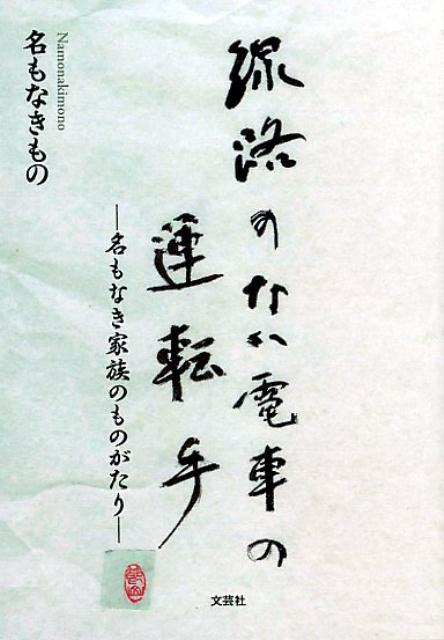 線路のない電車の
運転手
―名もなき家族のものがたり―
Namonakimono
名もなきもの
文芸社